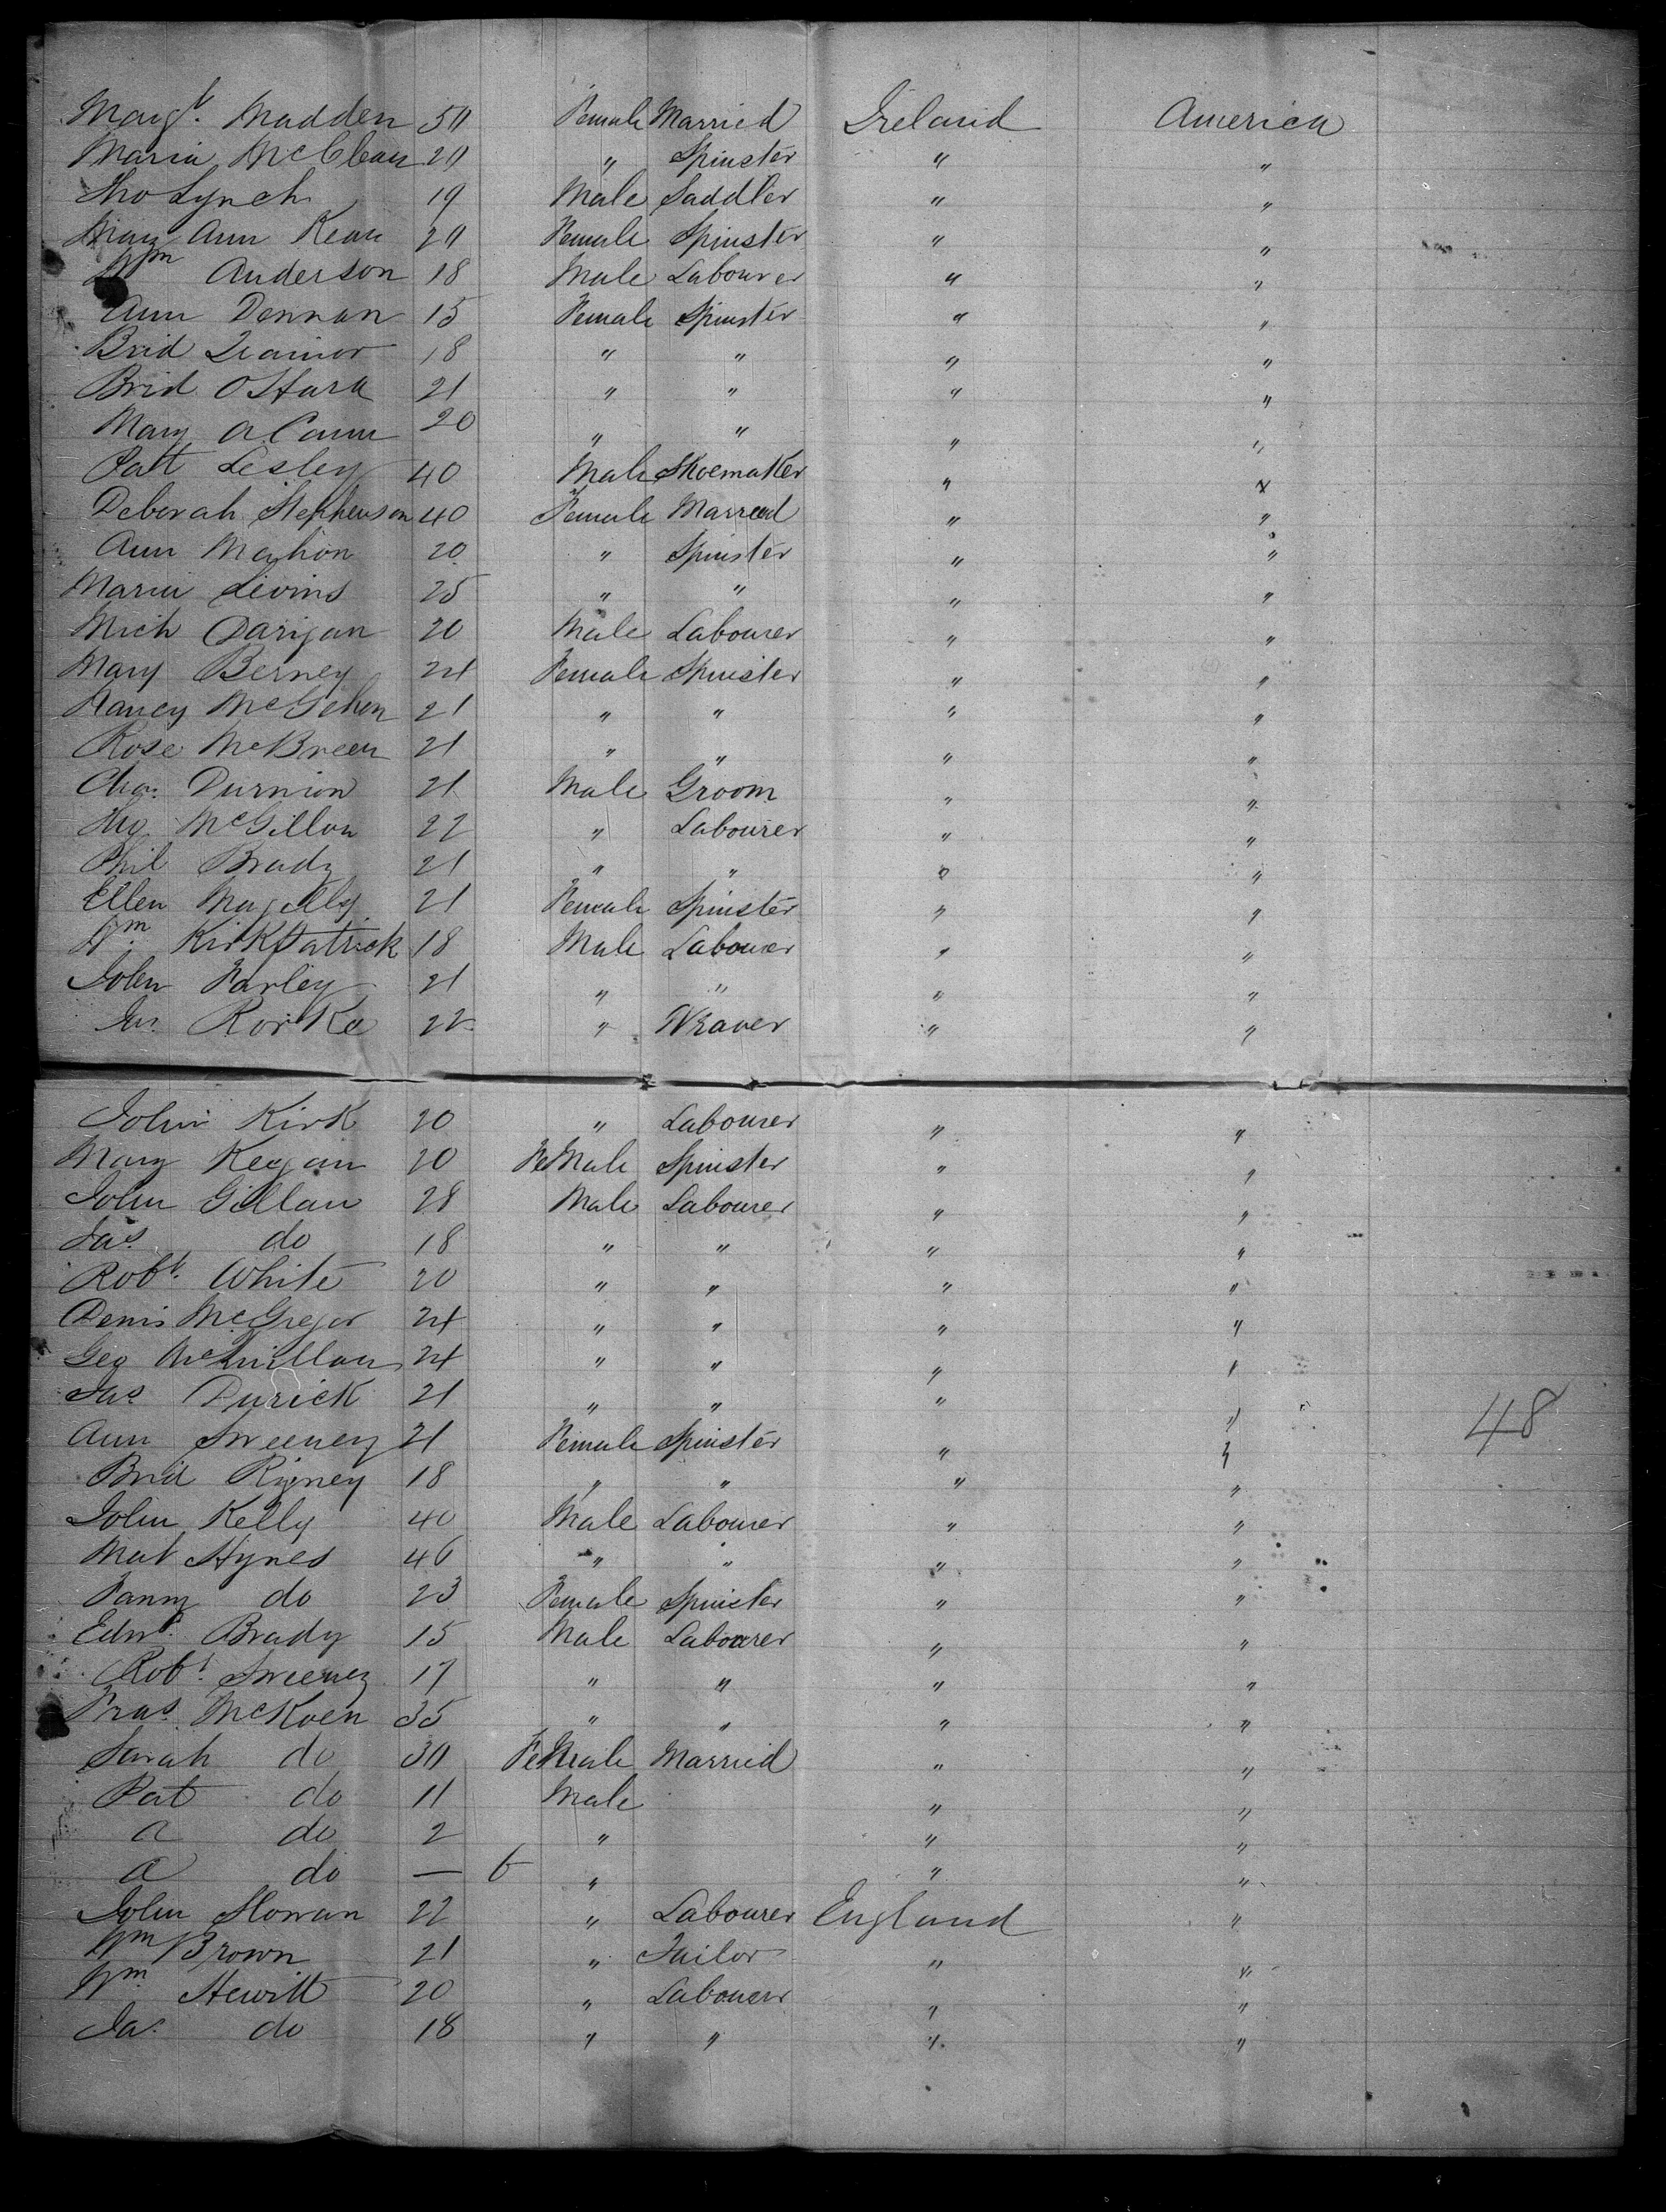 Margt. Madden 50 Female Married Ireland America
Maria McClean 20 " Spinster " "
Tho Lynch 19 Male Saddler " "
Mary Ann Kean 20 Female Spinster " "
Wm Anderson 18 Male Labourer " "
Ann Dennan 15 Female Spinster " "
Brid Trainor 18 " " " "
Brid OHara 21 " " " "
Mary A Cann 20 " " " "
Patt Lesley 40 Male Shoemaker " "
Deborah Stephenson 40 Female Married " "
Ann Mahon 20 " Spinster " "
Maria Livins 25 " " " "
Mich Darigan 20 Male Labourer " "
Mary Berney 24 Female Spinster " "
Nancy McGehen 21 " " " "
Rose McBreen 21 " " " "
Cha. Durnion 21 Male Groom " "
Hu McGillon 22 " Labourer " "
Phil Brady 21 " " " "
Ellen 21 Female Spinster " "
Wm. Kirkpatrick 18 Male Labourer " "
John Farley 21 " " " "
Jas. Rorke 22 " Weaver " "
John Kirk 20 " Labourer " "
Mary Keegan 20 FeMale Spinster " "
John Gillan 28 Male Labourer " "
Jas. do 18 " " " "
Robt. White 20 " " " "
Denis McGregor 24 " " " "
Geo McMillan 24 " " " "
Jas Durick 21 " " " "
48
Ann Sweeney 21 Female Spinster " "
Brid Rigney 18 " " " "
John Kelly 40 Male Labourer " "
Mat Hynes 46 " " " "
Fanny do 23 Female Spinster " "
Edwd. Brady 15 Male Labourer " "
Robt. Sweeney 17 " " " "
Fras. McKoen 35 " " " "
Sarah do 30 FeMale Married " "
Pat do 11 Male " "
A do 2 " " "
A do — 6 " " "
John Slowan 22 " Labourer England "
Wm Brown 21 " Tailor " "
Wm. Hewitt 20 " Labourer " "
Jas. do 18 " " " "